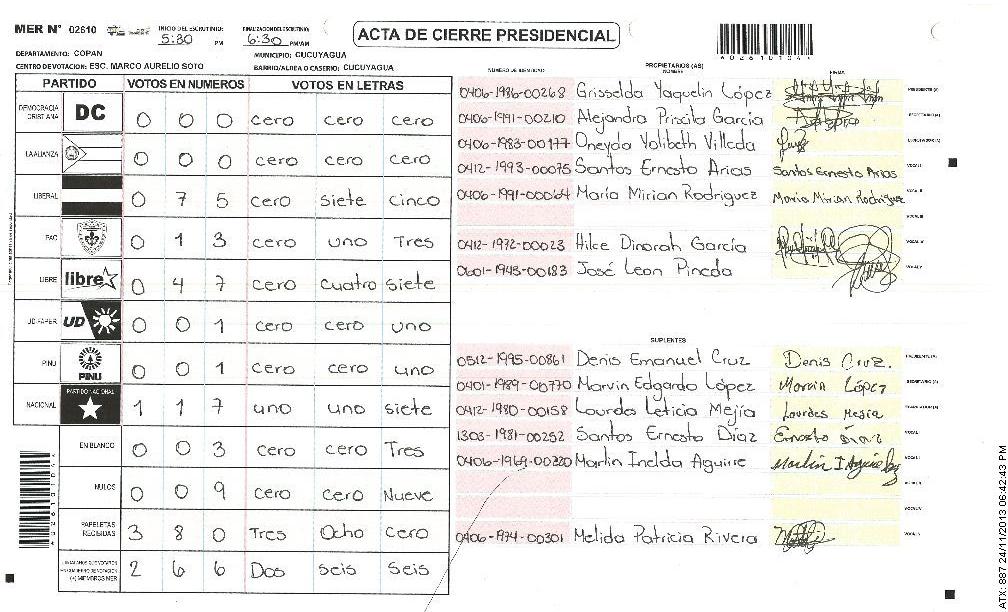 MER N° 02610 INICIO DEL ESCRUTINIO: 5:30 PM FINALIZACION DEL ESCRUTINIO: 6:30 PM/AM
ACTA DE CIERRE PRESIDENCIAL
DEPARTAMENTO: COPAN MUNICIPIO: CUCUYAGUA
CENTRO DE VOTACION: ESC. MARCO AURELIO SOTO BARRIO/ALDEA O CASERIO: CUCUYAGUA
PARTIDO VOTOS EN NUMEROS VOTOS EN LETRAS
DEMOCRACIA CRISTIANA DC 0 0 0 cero cero cero
LA ALIANZA 0 0 0 cero cero cero
LIBERAL 0 7 5 cero siete cinco
PAC 0 1 3 cero uno Tres
LIBRE libre 0 4 7 cero cuatro siete
UD-FAPER UD 0 0 1 cero cero uno
PINU PINU 0 0 1 cero cero uno
NACIONAL PARTIDO NACIONAL 1 1 7 uno uno siete
EN BLANCO 0 0 3 cero cero Tres
NULOS 0 0 9 cero cero Nueve
PAPELETAS RECIBIDAS 3 8 0 Tres Ocho cero
2 6 6 Dos seis seis
NUMERO DE IDENTIDAD PROPIETARIOS (AS) NOMBRE FIRMA
0406-1986-00268 Grisselda Yaquelin López PRESIDENTE (A)
0406-1991-00210 Alejandra Priscila García SECRETARIO (A)
0406-1983-00177 Oneyda Yolibeth Villeda
0412-1993-00075 Santos Ernesto Arias Santos Ernesto Arias VOCAL I
0406-1991-00064 María Mirian Rodriguez Maria Mirian Rodriguez VOCAL II
VOCAL III
0412-1972-00023 Hilce Dinorah García VOCAL IV
0601-1945-00183 José Leon Pineda VOCAL V
SUPLENTES
0512-1995-00861 Denis Emanuel Cruz Denis Cruz. PRESIDENTE (A)
0401-1989-00770 Marvin Edgardo López Marvin López SECRETARIO (A)
0412-1980-00158 Lourdes Leticia Mejía Lourdes Mejia
1303-1981-00252 Santos Ernesto Díaz Ernesto Díaz VOCAL I
0406-1969-00320 Marlin Inelda Aguirre Marlin I Aguirre
0406-1974-00301 Melida Patricia Rivera
A02610104
ATX: 887 24/11/2013 06:42:43 PM